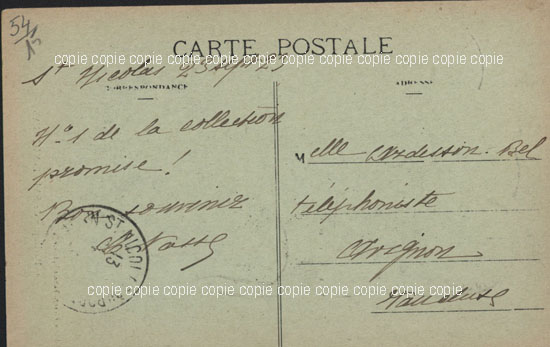 54
15
CARTE POSTALE
copie copie copie copie copie copie copie copie copie copie
St Nicolas 23
CORRESPONDANCE
ADRESSE
No 1 de la collection
promise!
Bon souvenir
copie copie copie copie copie copie copie copie copie copie
Melle
téléphoniste
Avignon
Vaucluse
ST NICOL
copie copie copie copie copie copie copie copie copie copie